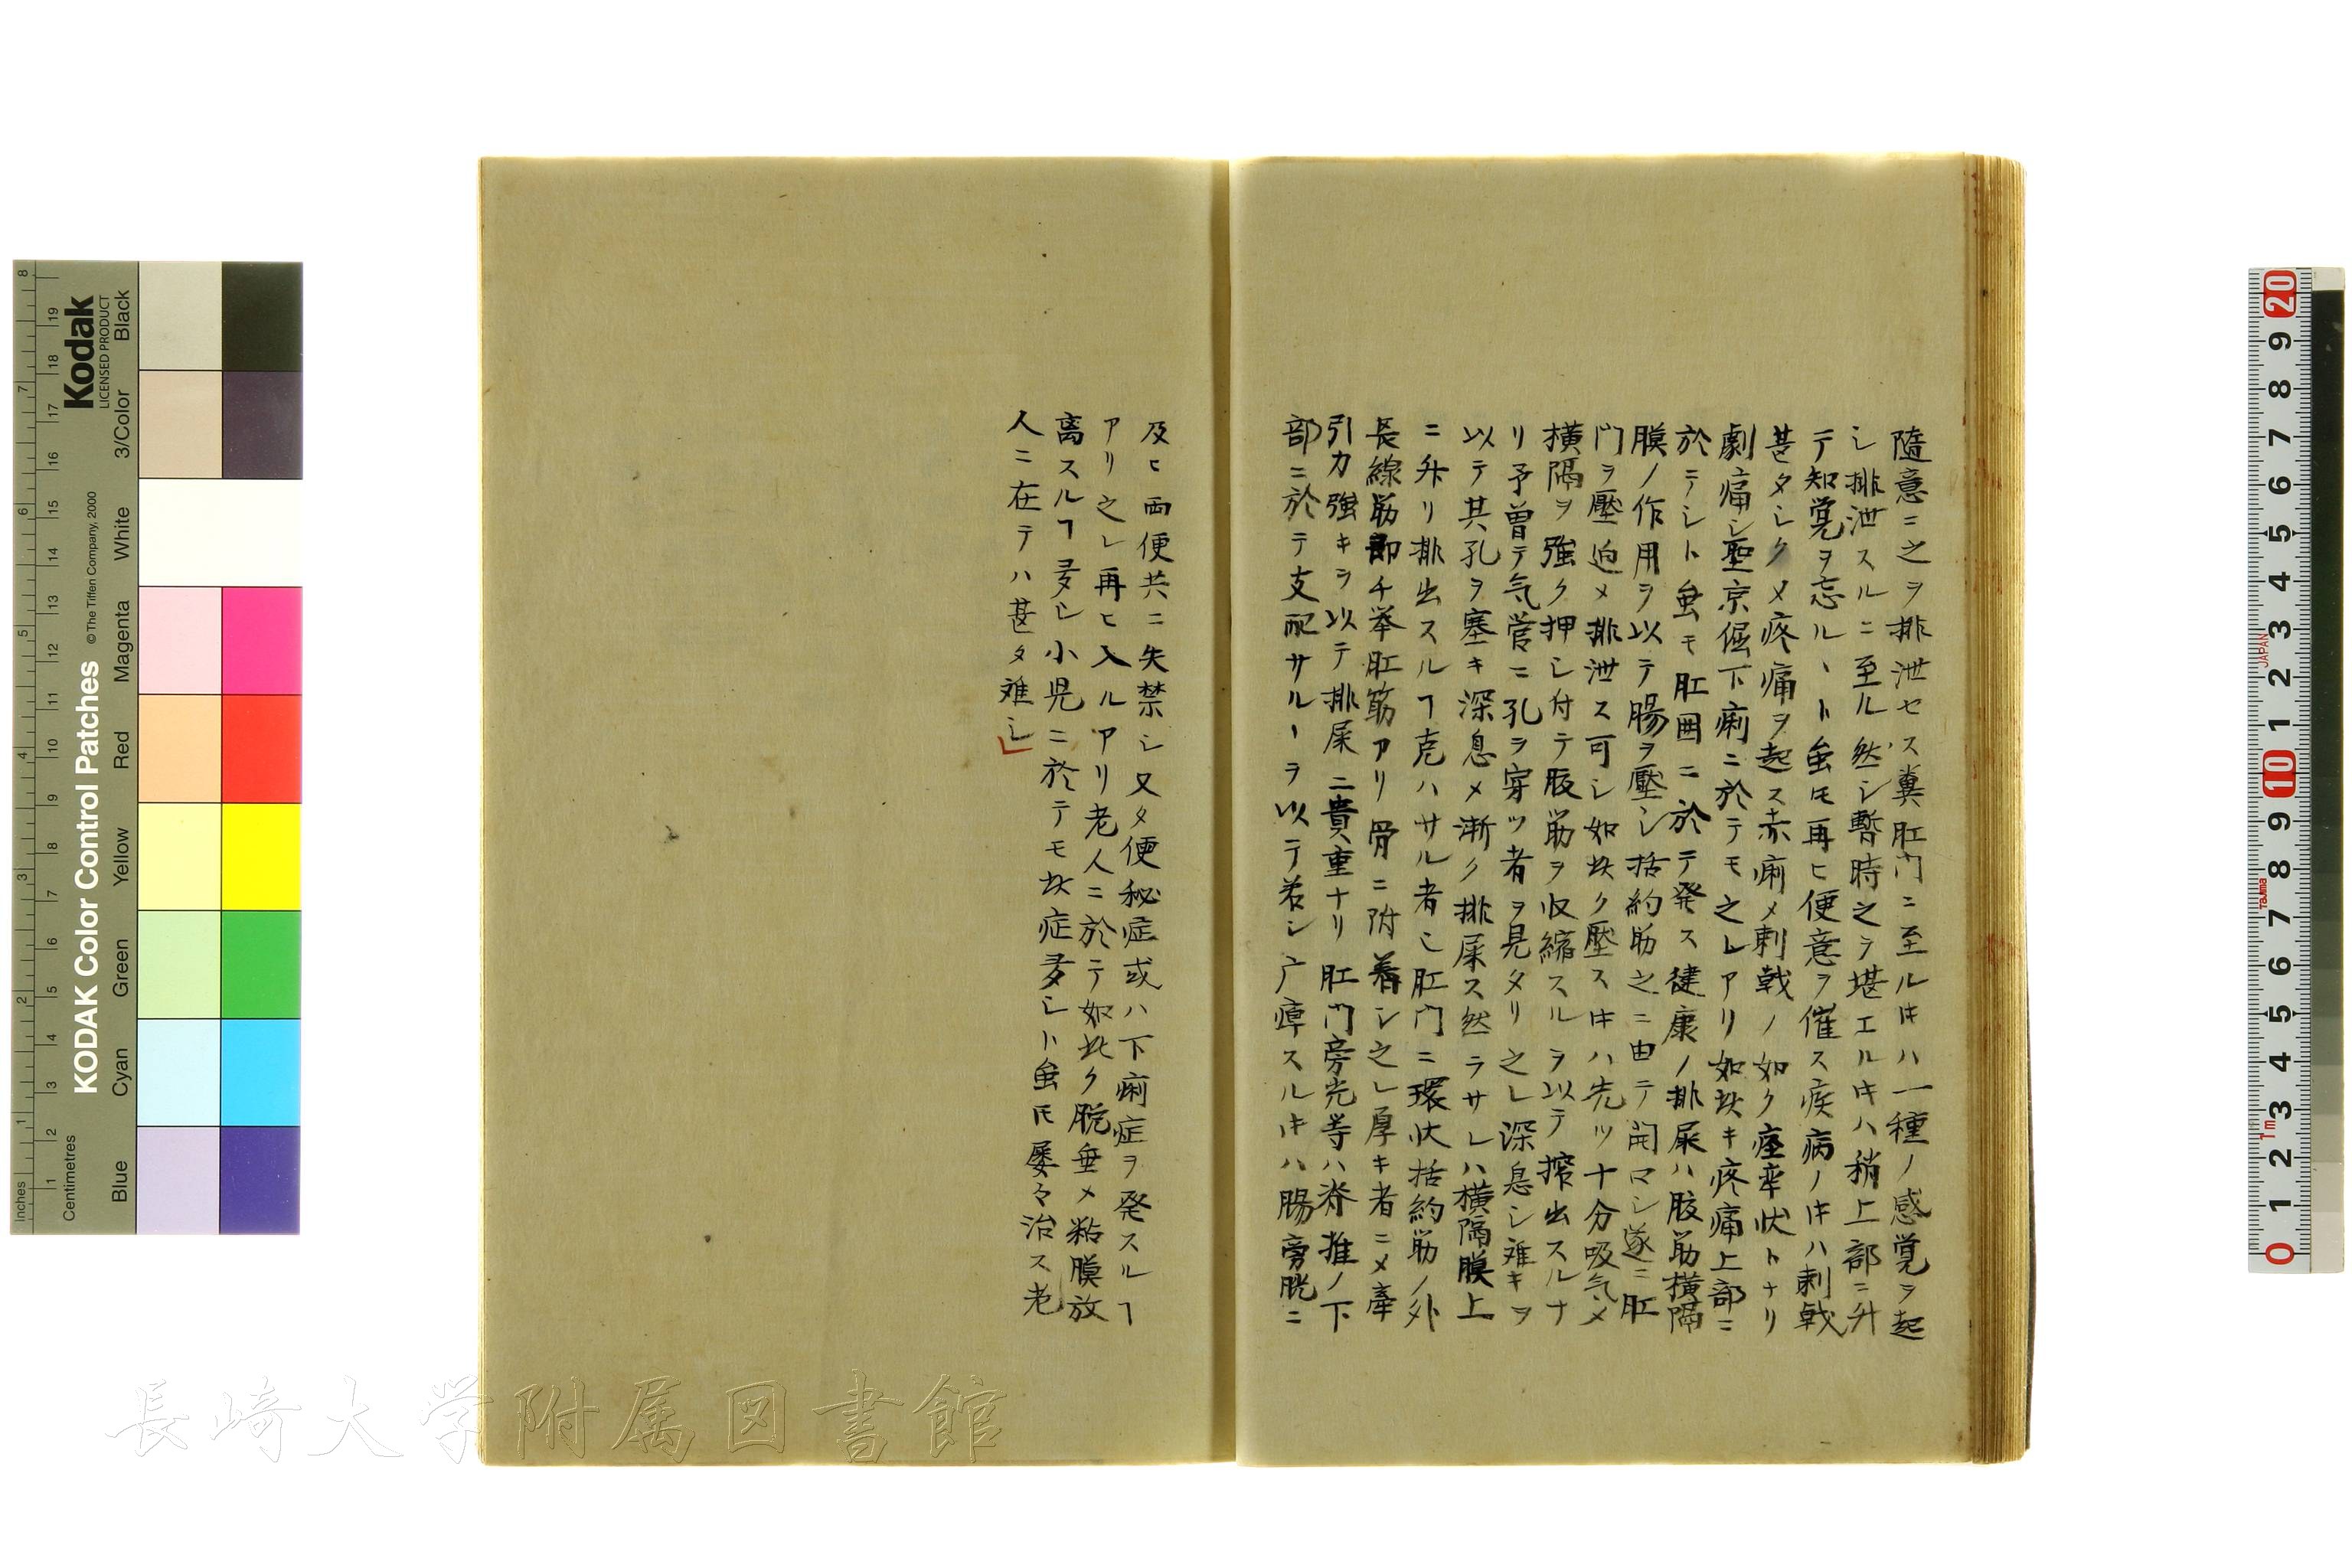 隨意ニ之ヲ排泄セス糞肛門ニ至ルキハ一種ノ感覚ヲ起
シ排泄スルニ至ル然シ暫時之ヲ堪エルキハ稍上部ニ升
テ知覚ヲ忘ルヽト虽𪜈再ヒ便意ヲ催ス疾病ノキハ刺戟
甚タシクメ疼痛ヲ起ス赤痢メ刺戟ノ如ク痙率状トナリ
劇痛シ聖京倔下痢ニ於テモ之レアリ如此キ疼痛上部ニ
於テシト虽モ肛囲ニ於テ発ス健康ノ排尿ハ肢筋横隔
膜ノ作用ヲ以テ腸ヲ壓シ括約筋之ニ由テ開マシ遂ニ肛
门ヲ壓迫メ排泄ス可シ如此ク壓スキハ先ツ十分吸气メ
横隔ヲ強ク押シ付テ肢筋ヲ収縮スルヲ以テ搾出スルナ
リ予曽テ气管ニ孔ヲ穿ツ者ヲ見タリ之レ深息シ难キヲ
以テ其孔ヲ塞キ深息メ漸ク排屎ス然ラサレハ横隔膜上
ニ升リ排出スルヿ克ハサル者乄肛门ニ環状括約筋ノ外
長線筋即チ挙肛筋アリ骨ニ附着シ之レ厚キ者ニメ牽
引力強キヲ以テ排屎ニ貴重ナリ肛门旁光等ハ脊推ノ下
部ニ於テ支配サルヽヲ以テ若シ广痺スルキハ腸旁胱ニ
及ヒ両便共ニ失禁シ又タ便秘症或ハ下痢症ヲ発スルヿ
アリ之レ再ヒ入ルアリ老人ニ於テ如此ク脱垂メ粘膜放
离スルヿ多シ小児ニ於テモ此症多シト虽𪜈屡々治ス老
人ニ在テハ甚タ难シ」
長崎大学附属図書館
Kodak
LICENSED PRODUCT
KODAK Color Control Patches
© The Tiffen Company, 2000
Inches
Centimetres
Blue
Cyan
Green
Yellow
Red
Magenta
White
3/Color
Black
JAPAN